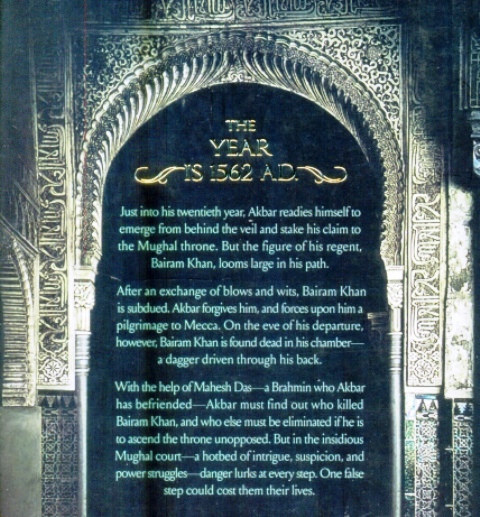 THE
YEAR
IS 1562 A.D.
Just into his twentieth year, Akbar readies himself to
emerge from behind the veil and stake his claim to
the Mughal throne. But the figure of his regent,
Bairam Khan, looms large in his path.
After an exchange of blows and wits, Bairam Khan
is subdued. Akbar forgives him, and forces upon him a
pilgrimage to Mecca. On the eve of his departure,
however, Bairam Khan is found dead in his chamber—
a dagger driven through his back.
With the help of Mahesh Das—a Brahmin who Akbar
has befriended—Akbar must find out who killed
Bairam Khan, and who else must be eliminated if he is
to ascend the throne unopposed. But in the insidious
Mughal court—a hotbed of intrigue, suspicion, and
power struggles—danger lurks at every step. One false
step could cost them their lives.